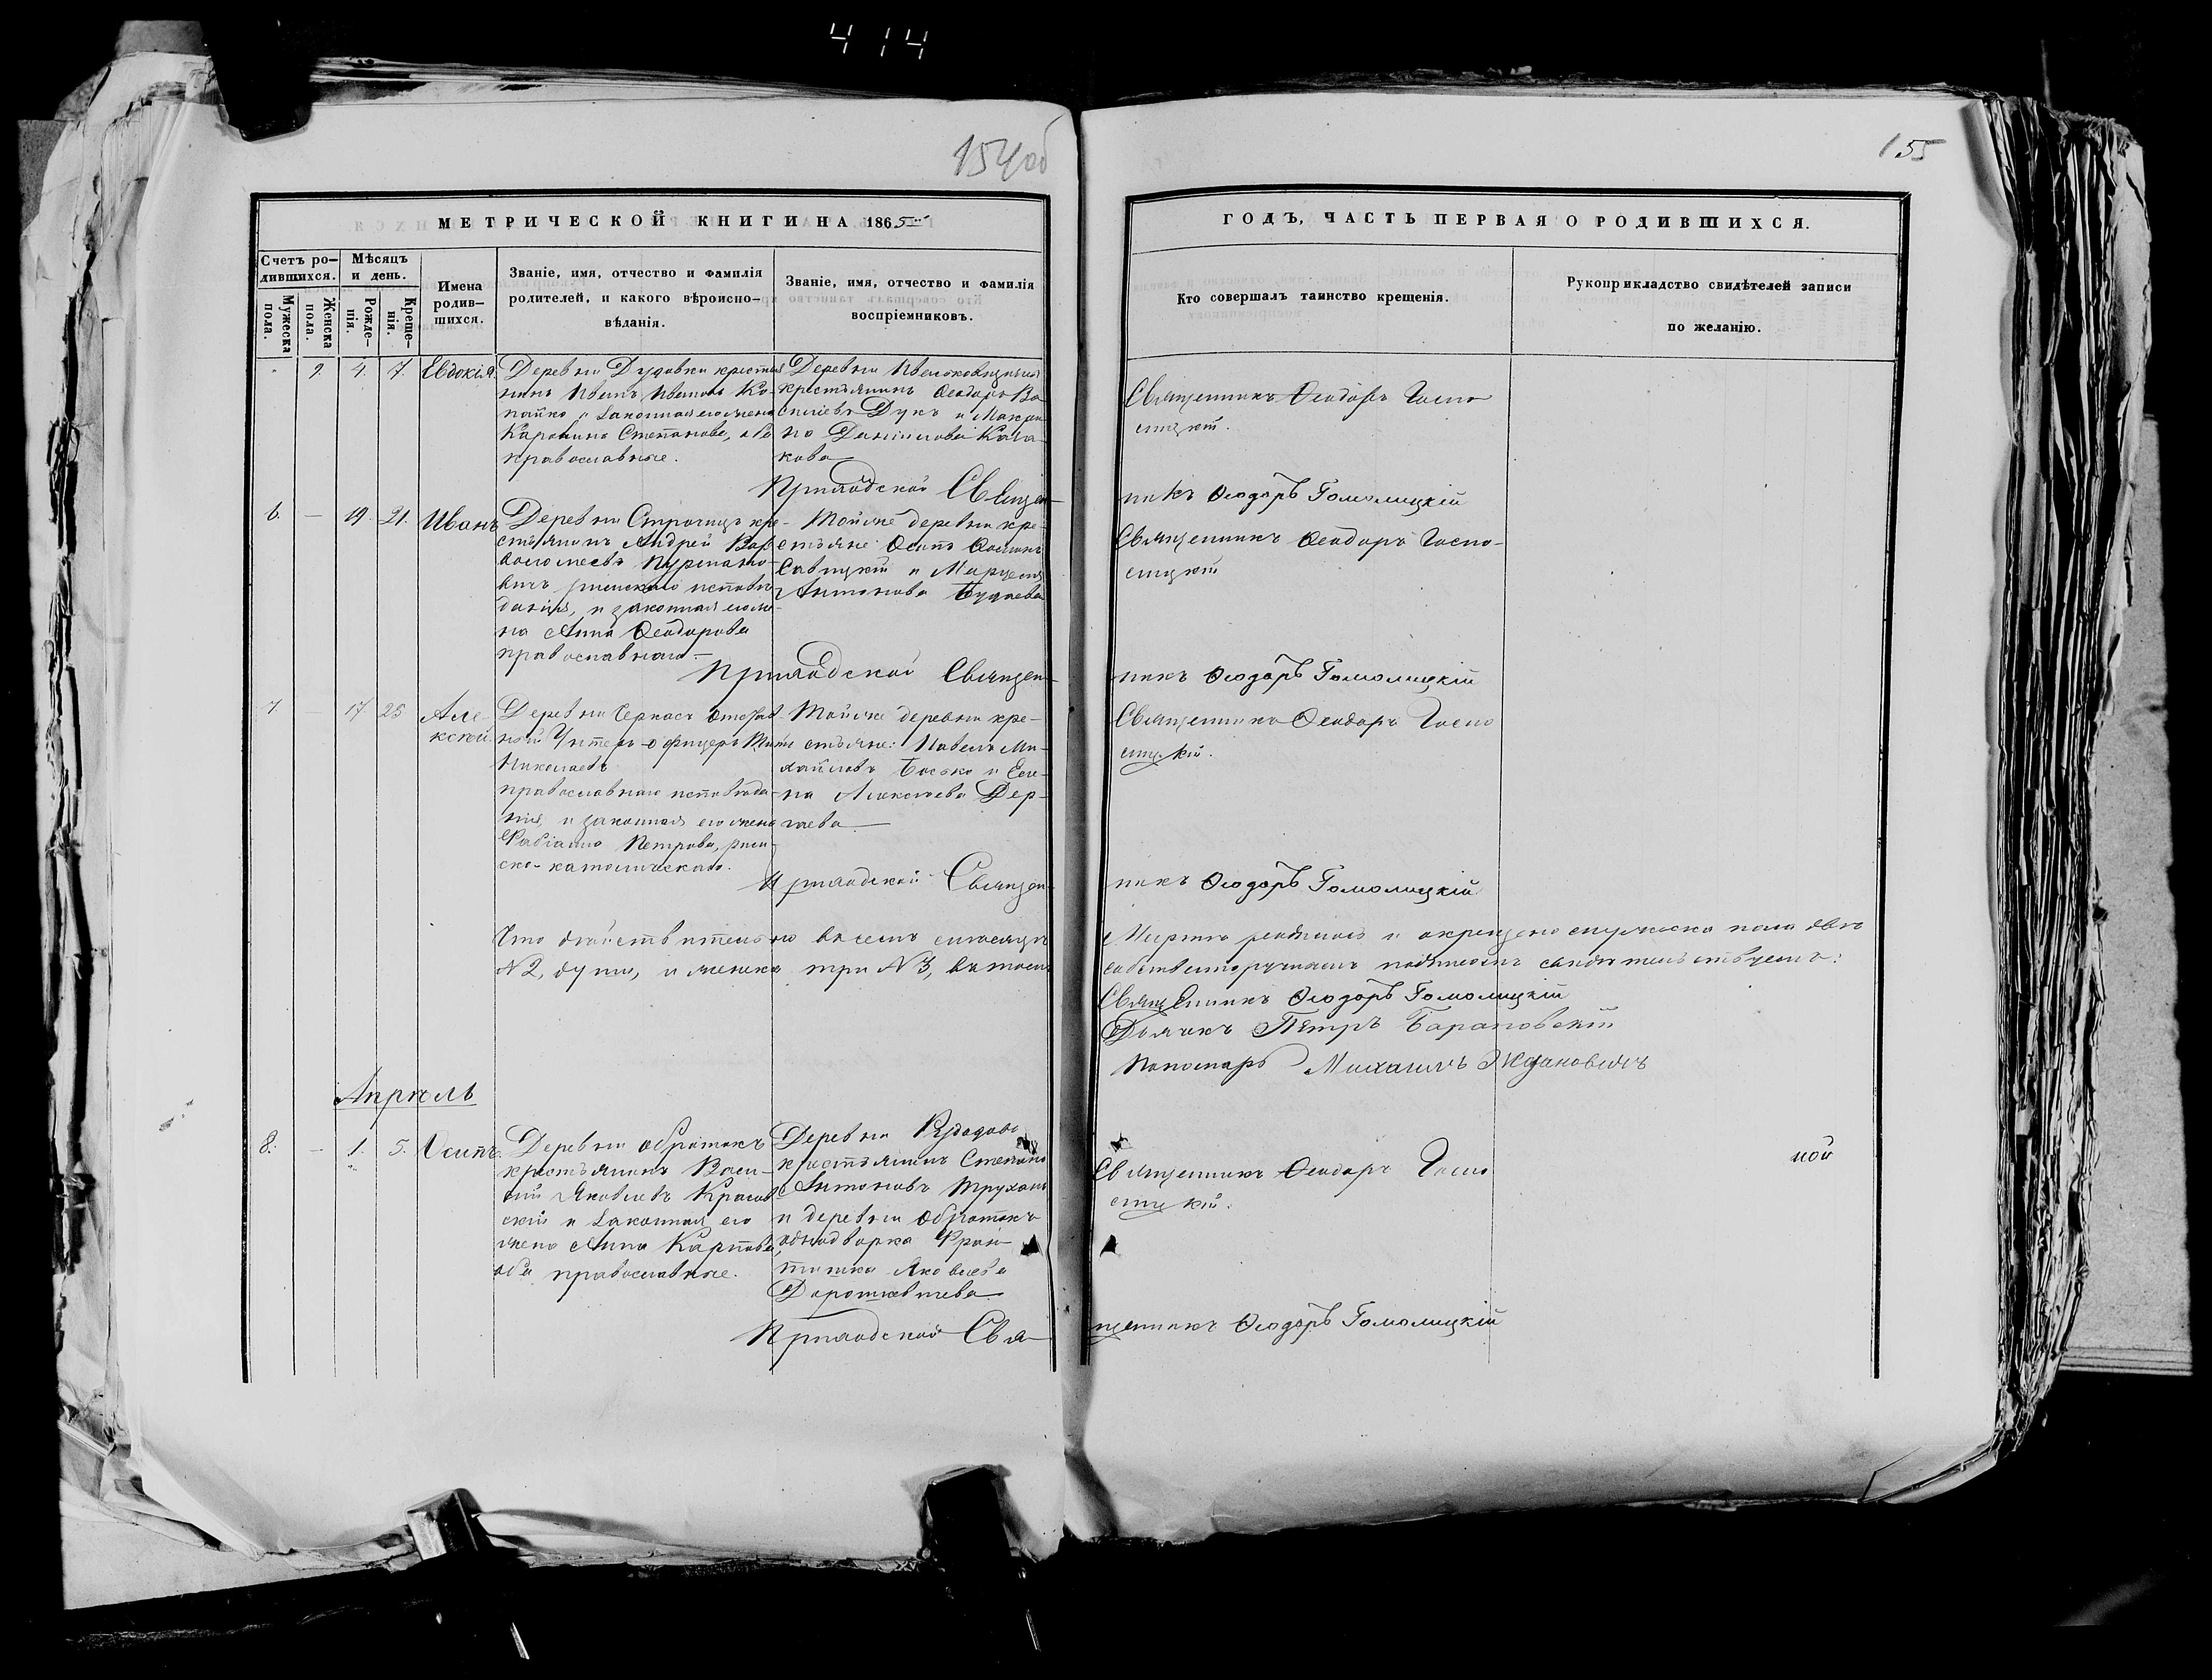 414
154об
155
МЕТРИЧЕСКОЙ КНИГИ НА 1865
ГОДЪ, ЧАСТЬ ПЕРВАЯ О РОДИВШИХСЯ.
Счетъ ро-
дившихся.
Мужеска
пола.
Женска
пола.
Мѣсяцъ
и день.
Рожде-
нія.
Креще-
нія.
Имена
родив-
шихся.
Званіе, имя, отчество и фамилія
родителей, и какого вѣроиспо-
вѣданія.
Званіе, имя, отчество и фамилія
воспріемниковъ.
Кто совершалъ таинство крещенія.
Рукоприкладство свидѣтелей записи
по желанію.
4. 7. Евдокія
Деревни
нинъ Иванъ Ивановъ
и законная его жена
Степанова, оба
православные.
Деревни
крестьянинъ Ѳеодоръ Ва
силіевъ и
Даниилова
кова
Священникъ Ѳеодоръ Гомо
лицкій.
Приходской Священ-
никъ Ѳеодоръ Гомолицкій
6. — 19. 21. Иванъ
Деревни кре-
стьянинъ Андрей
римскаго исповѣ
данія, и законная его же
на Анна Ѳеодорова
православнаго.
Тойже деревни кре-
стьяне Осипъ
Савицкій и
Антонова
Священникъ Ѳеодоръ Гомо-
лицкій
Приходской Священ-
никъ Ѳеодоръ Гомолицкій
7. — 17 25 Але-
ксѣй.
Деревни Черкасъ отстав
ной Унтеръ-офицеръ
Николаевъ
православнаго исповѣда-
нія, и законная его жена
Фабіанна Петрова, рим-
ско-католическаго.
Тойже деревни кре-
стьяне: Павелъ Ми-
хайловъ Босько и Еле-
на Алексѣева Дер-
гаева
Священникъ Ѳеодоръ Гомо
лицкій.
Приходской Священ-
никъ Ѳеодоръ Гомолицкій
Что дѣйствительно въ семъ мѣсяцѣ
Мартѣ родилось и окрещено мужеска пола двѣ
N 2, души, и женска три N 3, въ томъ
собственноручнымъ подписомъ свидѣтельствуемъ:
Священникъ Ѳеодоръ Гомолицкій
Дьячекъ Петръ Барановскій
Пономарь Михаилъ Ждановичъ
Апрѣль
8. — 1. 5. Осипъ.
Деревни
крестьянинъ Васи-
лій Яковлевъ
скій и законная его
жена Анна Карпова,
оба православные.
Деревни
крестьянинъ Степанъ
Антоновъ Труханъ
и деревни
однодворка Фран-
тишка Яковлева
Дорошкевичева
ной
Священникъ Ѳеодоръ Гомо
лицкій.
Приходской Свя-
щенникъ Ѳеодоръ Гомолицкій